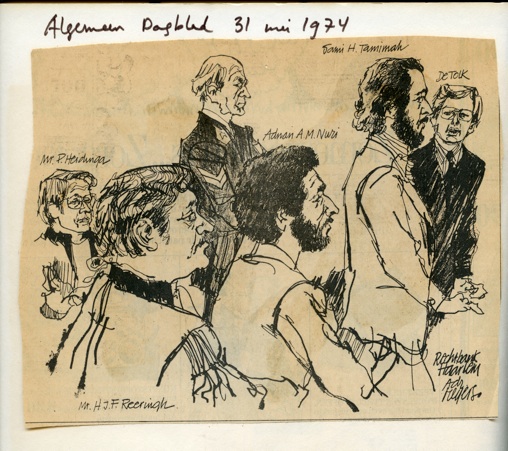 Algemeen Dagblad 31 mei 1974
Sami H. Tamimah
De Tolk
Adnan A.M. Nuri
Mr. P. Heidinga
Rechtbank
Haarlem
Mr. H.J.F. Reeringh